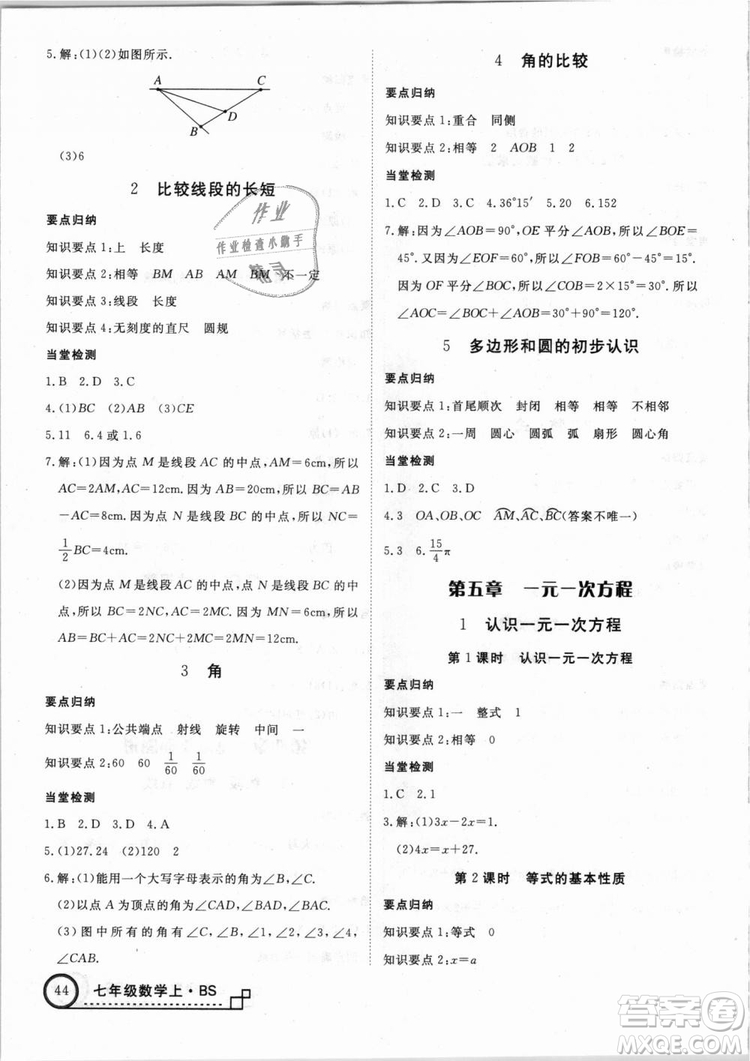 5.解:(1)(2)如图所示.
A
C
D
B
(3)6
2 比较线段的长短
要点归纳
知识要点1:上 长度
知识要点2:相等 BM AB AM BM 不一定
知识要点3:线段 长度
知识要点4:无刻度的直尺 圆规
当堂检测
1.B 2.D 3.C
4.(1)BC (2)AB (3)CE
5.11 6.4或1.6
7.解:(1)因为点M是线段AC的中点,AM=6cm,所以
AC=2AM,AC=12cm.因为AB=20cm,所以BC=AB
-AC=8cm.因为点N是线段BC的中点,所以NC=
1/2BC=4cm.
(2)因为点M是线段AC的中点,点N是线段BC的中
点,所以BC=2NC,AC=2MC.因为MN=NC+
MC=8cm,所以AB=BC+AC=2NC+2MC=2×
8=16cm.
3 角
要点归纳
知识要点1:公共端点 射线 旋转 中间 一
知识要点2:60 60 1/60 1/60
当堂检测
1.B 2.D 3.D 4.A
5.(1)27.24 (2)120 2
6.解:(1)能用一个大写字母表示的角为∠B,∠C.
(2)以点A为顶点的角为∠CAD,∠BAD,∠CAB.
(3)图中所有的角有∠C,∠B,∠1,∠2,∠3,∠4,
∠CAB.
44 七年级数学上·BS
4 角的比较
要点归纳
知识要点1:重合 同侧
知识要点2:相等 2 AOB 1 2
当堂检测
1.C 2.D 3.C 4.36°15′ 5.20 6.152
7.解:因为∠AOB=90°,OE平分∠AOB,所以∠BOE=
45°.又因为∠EOF=60°,所以∠BOF=15°.
因为OF平分∠BOC,所以∠BOC=2×15°=30°.所以
∠AOC=∠BOC+∠AOB=30°+90°=120°.
5 多边形和圆的初步认识
要点归纳
知识要点1:首尾顺次 封闭 相等 相等 不相邻
知识要点2:一周 圆心 圆弧 弧 扇形 圆心角
当堂检测
1.C 2.B 3.D
4.3 OA、OB、OC AM、AC、BC(答案不唯一)
5.3 6.15/4π
第五章 一元一次方程
1 认识一元一次方程
第1课时 认识一元一次方程
要点归纳
知识要点1:一 整式 1
知识要点2:相等 0
当堂检测
1.C 2.1
3.解:(1)3x-2x=1.
(2)4x=x+27.
第2课时 等式的基本性质
要点归纳
知识要点1:等式 0
知识要点2:x=a
作业
作业检查小助手
答案圈
MXQE.COM